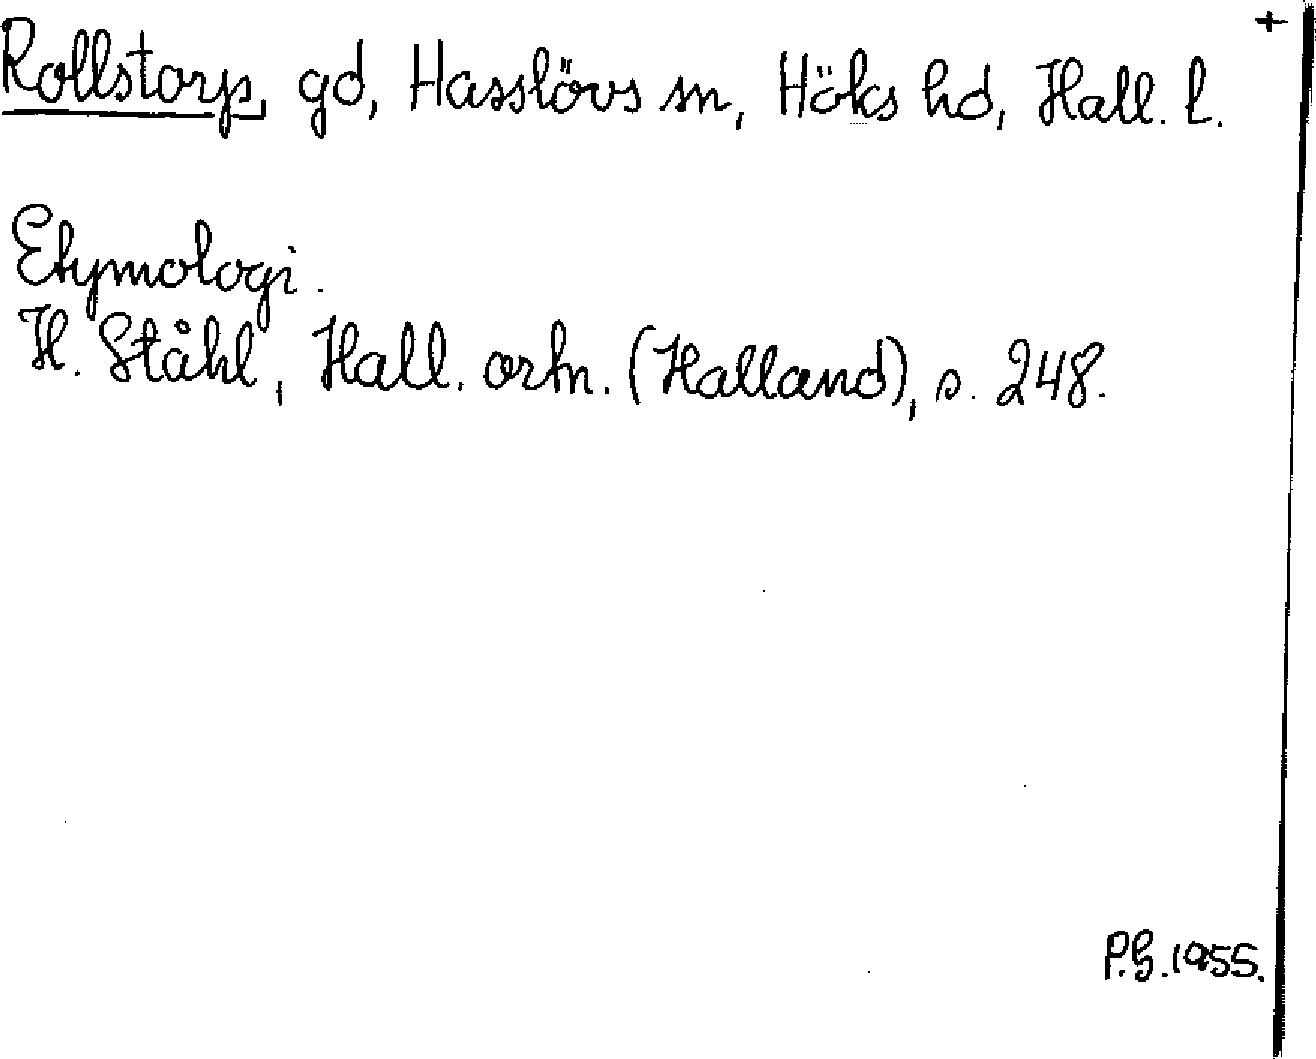 +
Rollstorp, gd, Hasslövs sn, Höks hd, Hall. l.
Etymologi.
H. Ståhl, Hall. ortn. (Halland), s. 248.
P.G. 1955.